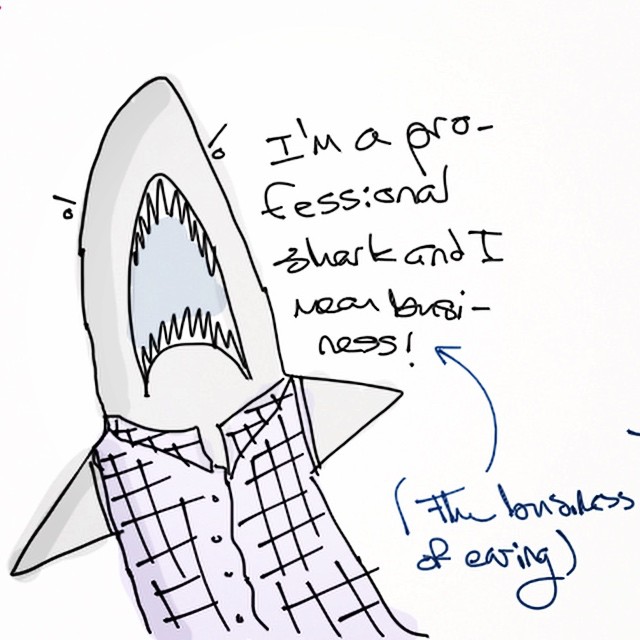 I'm a pro-
fessional
shark and I
mean busi-
ness!
(the business
of eating)